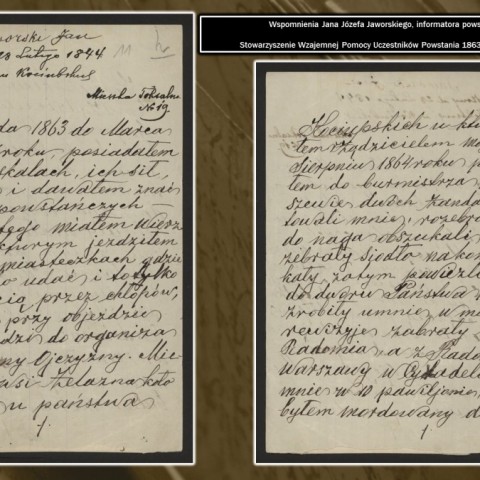 Wspomnienia Jana Józefa Jaworskiego, informatora pows
Stowarzyszenie Wzajemnej Pomocy Uczestników Powstania 1863
orski Jan
23 Lutego 1844
11
Mieszka
№ 19
da 1863 do Marca
roku, posiadałem
skałach, ich sił,
i dawałem znać
powstańczych —
tego miałem wierz
którym jeździłem
miasteczkach gdzie
o udać i to tylko
cią przez chłopów,
przy objeździe
dzi do organiza
my Ojczyzny. Mie
wsi Żelazna koło
u państwa
1.
Kociupskich u któ
tem rządzicielem ma
Sierpniu 1864 roku
tem do burmistrza
szewe dwóch żanda
towali mnie, rozebra
do naga obszukali
zebrały siodło na kon
kały, zatym powiezli
do dworu Państwa
zrobiły u mnie w m
rewizyje zabrały
Radomia a z Rado
Warszawy w Cytadeli
mnie w 10 pawilonie,
byłem mordowany d
1.